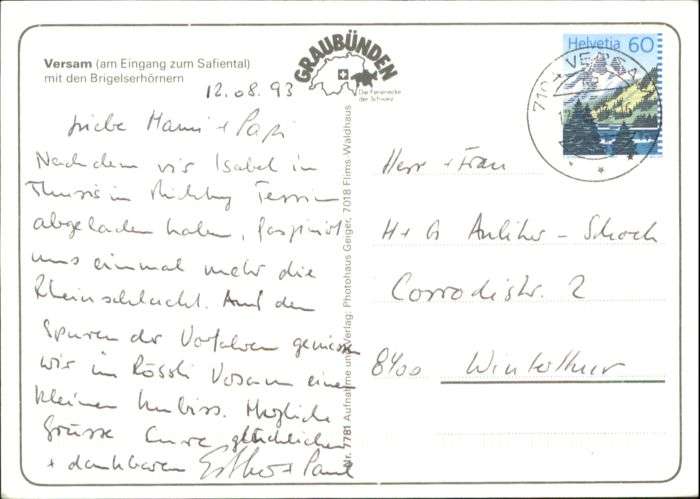 Versam (am Eingang zum Safiental)
mit den Brigelserhörnern
GRAUBÜNDEN
Die Ferienecke
der Schweiz
Helvetia 60
12.08.93
Liebe Mami + Papi
Nachdem wir Isabel in
Thusis in Richtung Tessin
abgeladen haben, fasziniert
uns einmal mehr die
Rheinschlucht. Auf den
Spuren der Vorfahren geniessen
wir im Rössli Versam einen
kleinen Imbiss. Herzliche
Grüsse Eure glücklichen
+ dankbaren Esther + Paul
Nr. 7781 Aufnahme und Verlag: Photohaus Geiger, 7018 Flims Waldhaus
Herr + Frau
H + G
Corrodistr. 2
8400 Winterthur